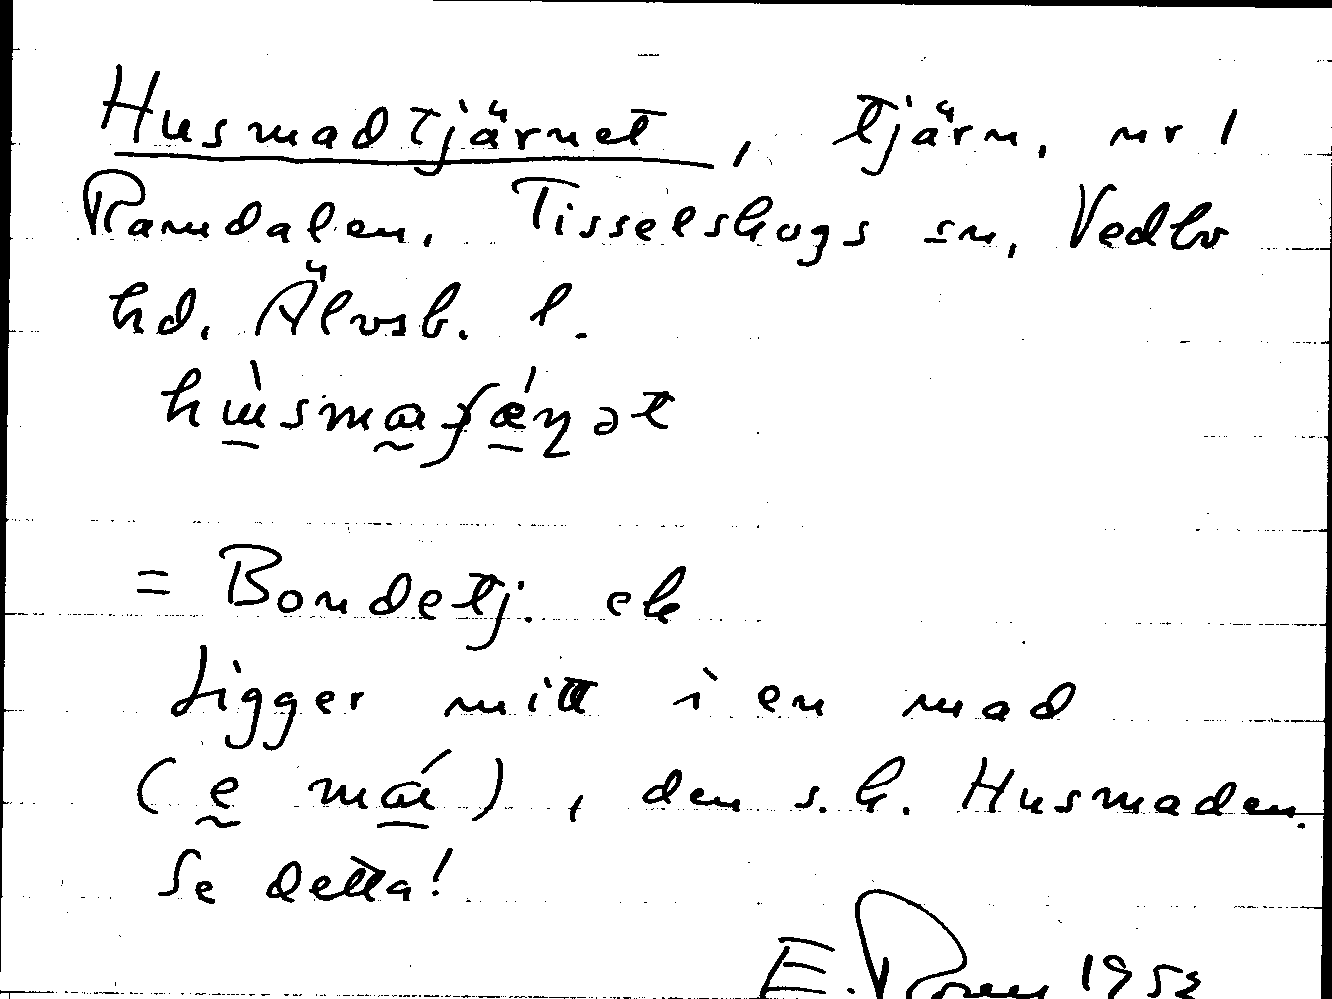 Husmadtjärnet, tjärn, nr 1
Ramdalen, Tisselskogs sn, Vedbo
hd. Älvsb. l.
= Bondetj. ek
Ligger mitt i en mad
(ḛ mɑ́), den s.k. Husmaden.
Se detta!
E. 195